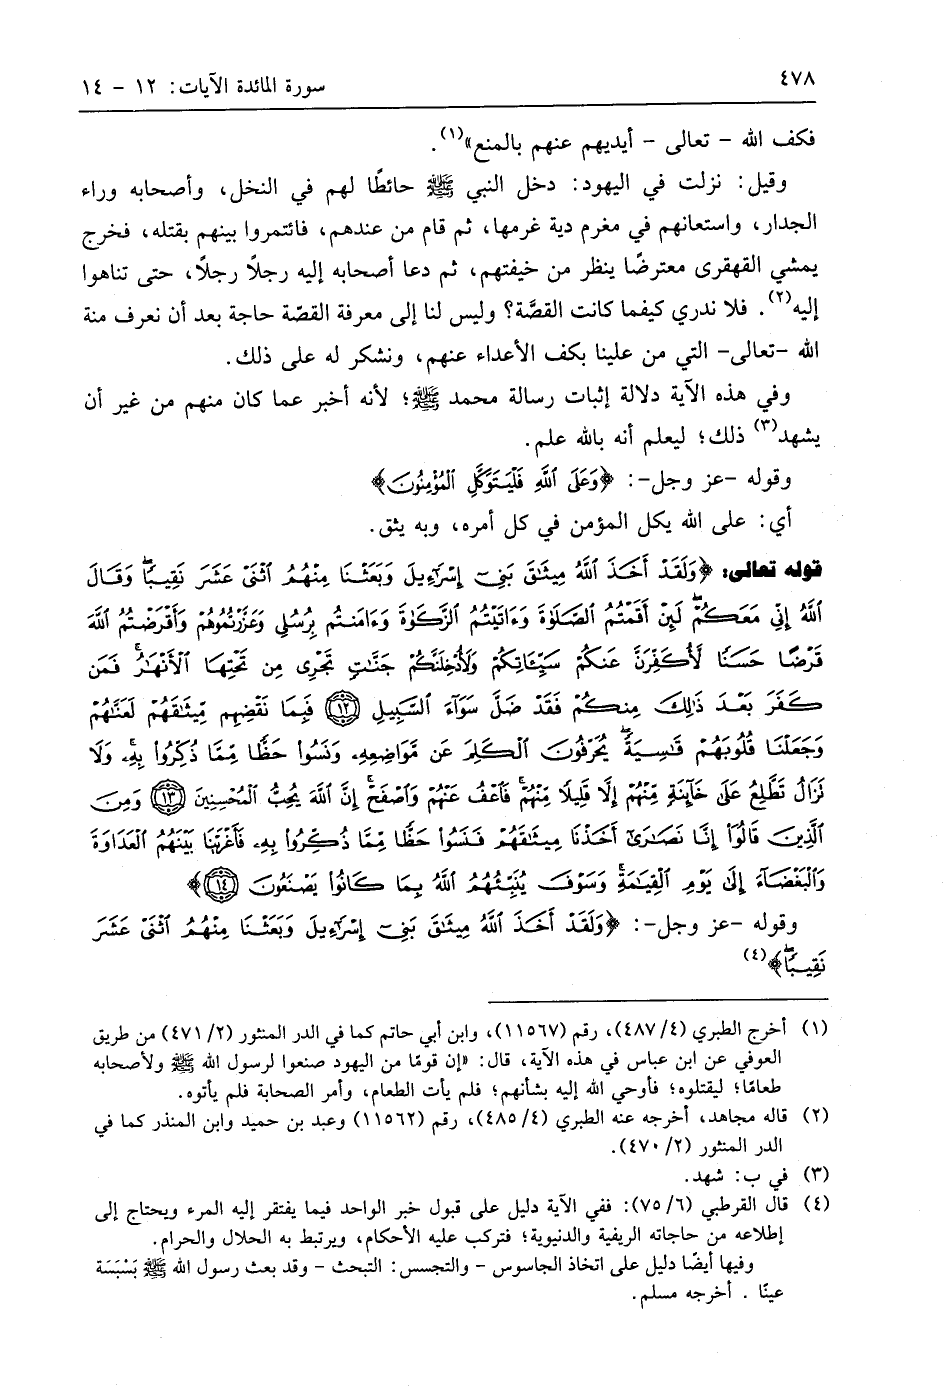 ٤٧٨
سورة المائدة الآيات: ١٢ - ١٤
فكف الله - تعالى - أيديهم عنهم بالمنع»(١).
وقيل: نزلت في اليهود: دخل النبي ﷺ حائطًا لهم في النخل، وأصحابه وراء
الجدار، واستعانهم في مغرم دية غرمها، ثم قام من عندهم، فائتمروا بينهم بقتله، فخرج
يمشي القهقرى معترضًا ينظر من خيفتهم، ثم دعا أصحابه إليه رجلًا رجلًا، حتى تناهوا
إليه(٢). فلا ندري كيفما كانت القصَّة؟ وليس لنا إلى معرفة القصّة حاجة بعد أن نعرف منة
الله -تعالى- التي من علينا بكف الأعداء عنهم، ونشكر له على ذلك.
وفي هذه الآية دلالة إثبات رسالة محمد ﷺ؛ لأنه أخبر عما كان منهم من غير أن
يشهد(٣) ذلك؛ ليعلم أنه بالله علم.
وقوله -عز وجل-: ﴿وَعَلَى ٱللَّهِ فَلۡيَتَوَكَّلِ ٱلۡمُؤۡمِنُونَ﴾
أي: على الله يكل المؤمن في كل أمره، وبه يثق.
قوله تعالى: ﴿وَلَقَدۡ أَخَذَ ٱللَّهُ مِيثَٰقَ بَنِيٓ إِسۡرَٰٓءِيلَ وَبَعَثۡنَا مِنۡهُمُ ٱثۡنَيۡ عَشَرَ نَقِيبٗاۖ وَقَالَ
ٱللَّهُ إِنِّي مَعَكُمۡۖ لَئِنۡ أَقَمۡتُمُ ٱلصَّلَوٰةَ وَءَاتَيۡتُمُ ٱلزَّكَوٰةَ وَءَامَنتُم بِرُسُلِي وَعَزَّرۡتُمُوهُمۡ وَأَقۡرَضۡتُمُ ٱللَّهَ
قَرۡضًا حَسَنٗا لَّأُكَفِّرَنَّ عَنكُمۡ سَيِّـَٔاتِكُمۡ وَلَأُدۡخِلَنَّكُمۡ جَنَّٰتٖ تَجۡرِي مِن تَحۡتِهَا ٱلۡأَنۡهَٰرُۚ فَمَن
كَفَرَ بَعۡدَ ذَٰلِكَ مِنكُمۡ فَقَدۡ ضَلَّ سَوَآءَ ٱلسَّبِيلِ ١٢ فَبِمَا نَقۡضِهِم مِّيثَٰقَهُمۡ لَعَنَّٰهُمۡ
وَجَعَلۡنَا قُلُوبَهُمۡ قَٰسِيَةٗۖ يُحَرِّفُونَ ٱلۡكَلِمَ عَن مَّوَاضِعِهِۦ وَنَسُواْ حَظّٗا مِّمَّا ذُكِّرُواْ بِهِۦۚ وَلَا
تَزَالُ تَطَّلِعُ عَلَىٰ خَآئِنَةٖ مِّنۡهُمۡ إِلَّا قَلِيلٗا مِّنۡهُمۡۖ فَٱعۡفُ عَنۡهُمۡ وَٱصۡفَحۡۚ إِنَّ ٱللَّهَ يُحِبُّ ٱلۡمُحۡسِنِينَ ١٣ وَمِنَ
ٱلَّذِينَ قَالُوٓاْ إِنَّا نَصَٰرَىٰٓ أَخَذۡنَا مِيثَٰقَهُمۡ فَنَسُواْ حَظّٗا مِّمَّا ذُكِّرُواْ بِهِۦ فَأَغۡرَيۡنَا بَيۡنَهُمُ ٱلۡعَدَاوَةَ
وَٱلۡبَغۡضَآءَ إِلَىٰ يَوۡمِ ٱلۡقِيَٰمَةِۚ وَسَوۡفَ يُنَبِّئُهُمُ ٱللَّهُ بِمَا كَانُواْ يَصۡنَعُونَ ١٤﴾
وقوله -عز وجل-: ﴿وَلَقَدۡ أَخَذَ ٱللَّهُ مِيثَٰقَ بَنِيٓ إِسۡرَٰٓءِيلَ وَبَعَثۡنَا مِنۡهُمُ ٱثۡنَيۡ عَشَرَ
نَقِيبٗاۖ﴾(٤)
(١) أخرج الطبري (٤/٤٨٧)، رقم (١١٥٦٧)، وابن أبي حاتم كما في الدر المنثور (٢/٤٧١) من طريق
العوفي عن ابن عباس في هذه الآية، قال: «إن قومًا من اليهود صنعوا لرسول الله ﷺ ولأصحابه
طعامًا؛ ليقتلوه؛ فأوحي الله إليه بشأنهم؛ فلم يأت الطعام، وأمر الصحابة فلم يأتوه.
(٢) قاله مجاهد، أخرجه عنه الطبري (٤/٤٨٥)، رقم (١١٥٦٢) وعبد بن حميد وابن المنذر كما في
الدر المنثور (٢/٤٧٠).
(٣) في ب: شهد.
(٤) قال القرطبي (٦/٧٥): ففي الآية دليل على قبول خبر الواحد فيما يفتقر إليه المرء ويحتاج إلى
إطلاعه من حاجاته الريفية والدنيوية؛ فتركب عليه الأحكام، ويرتبط به الحلال والحرام.
وفيها أيضًا دليل على اتخاذ الجاسوس - والتجسس: التبحث - وقد بعث رسول الله ﷺ بَسْبَسَة
عينًا . أخرجه مسلم.